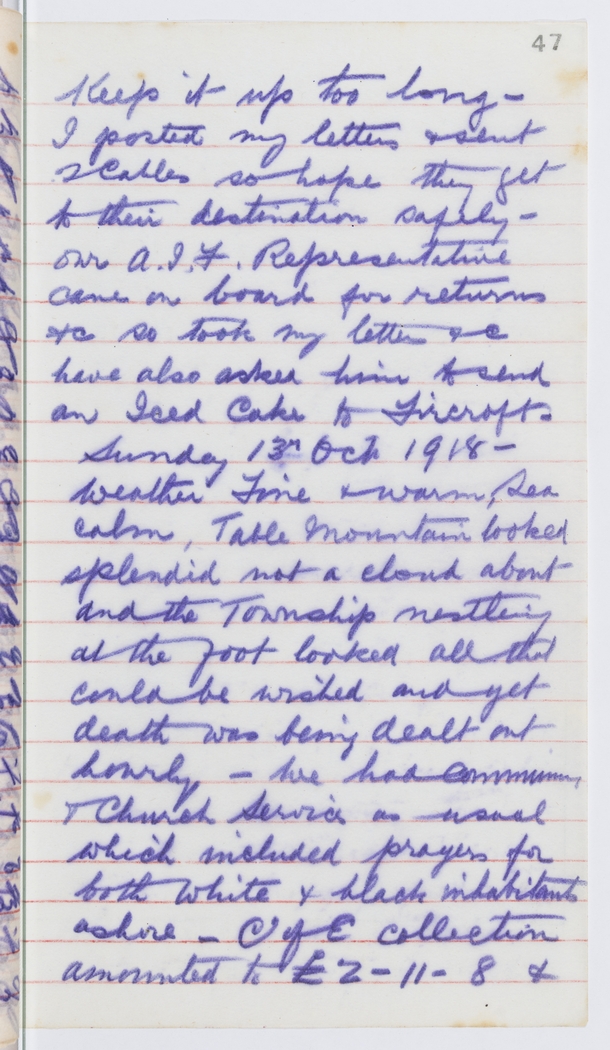 47
Keep it up too long –
I posted my letters & sent
2 Cables so hope they get
to their destination safely –
our A.I.F. Representative
came on board for returns
&c so took my letters &c
have also asked him to send
an Iced Cake to Fircroft.
Sunday 13th Oct 1918 –
Weather Fine & warm, Sea
calm, Table Mountain looked
splendid not a cloud about
and the Township nestling
at the foot looked all that
could be wished and yet
death was being dealt out
hourly – We had Communion
& Church Service as usual
which included prayers for
both white & black inhabitants
ashore – C of E collection
amounted to £2-11-8 &